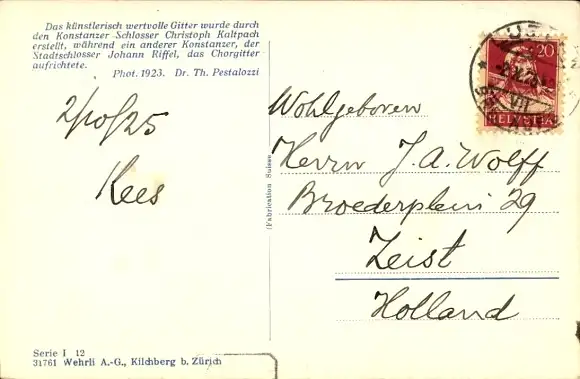 Das künstlerisch wertvolle Gitter wurde durch
den Konstanzer Schlosser Christoph Kaltpach
erstellt, während ein anderer Konstanzer, der
Stadtschlosser Johann Riffel, das Chorgitter
aufrichtete.
Phot. 1923. Dr. Th. Pestalozzi
2/10/25
Kees
(Fabrication Suisse)
20
HELVETIA
VII
Wohlgeboren
Herrn J. A. Wolff
Broederplein 29
Zeist
Holland
Serie I 12
31761 Wehrli A.-G., Kilchberg b. Zürich